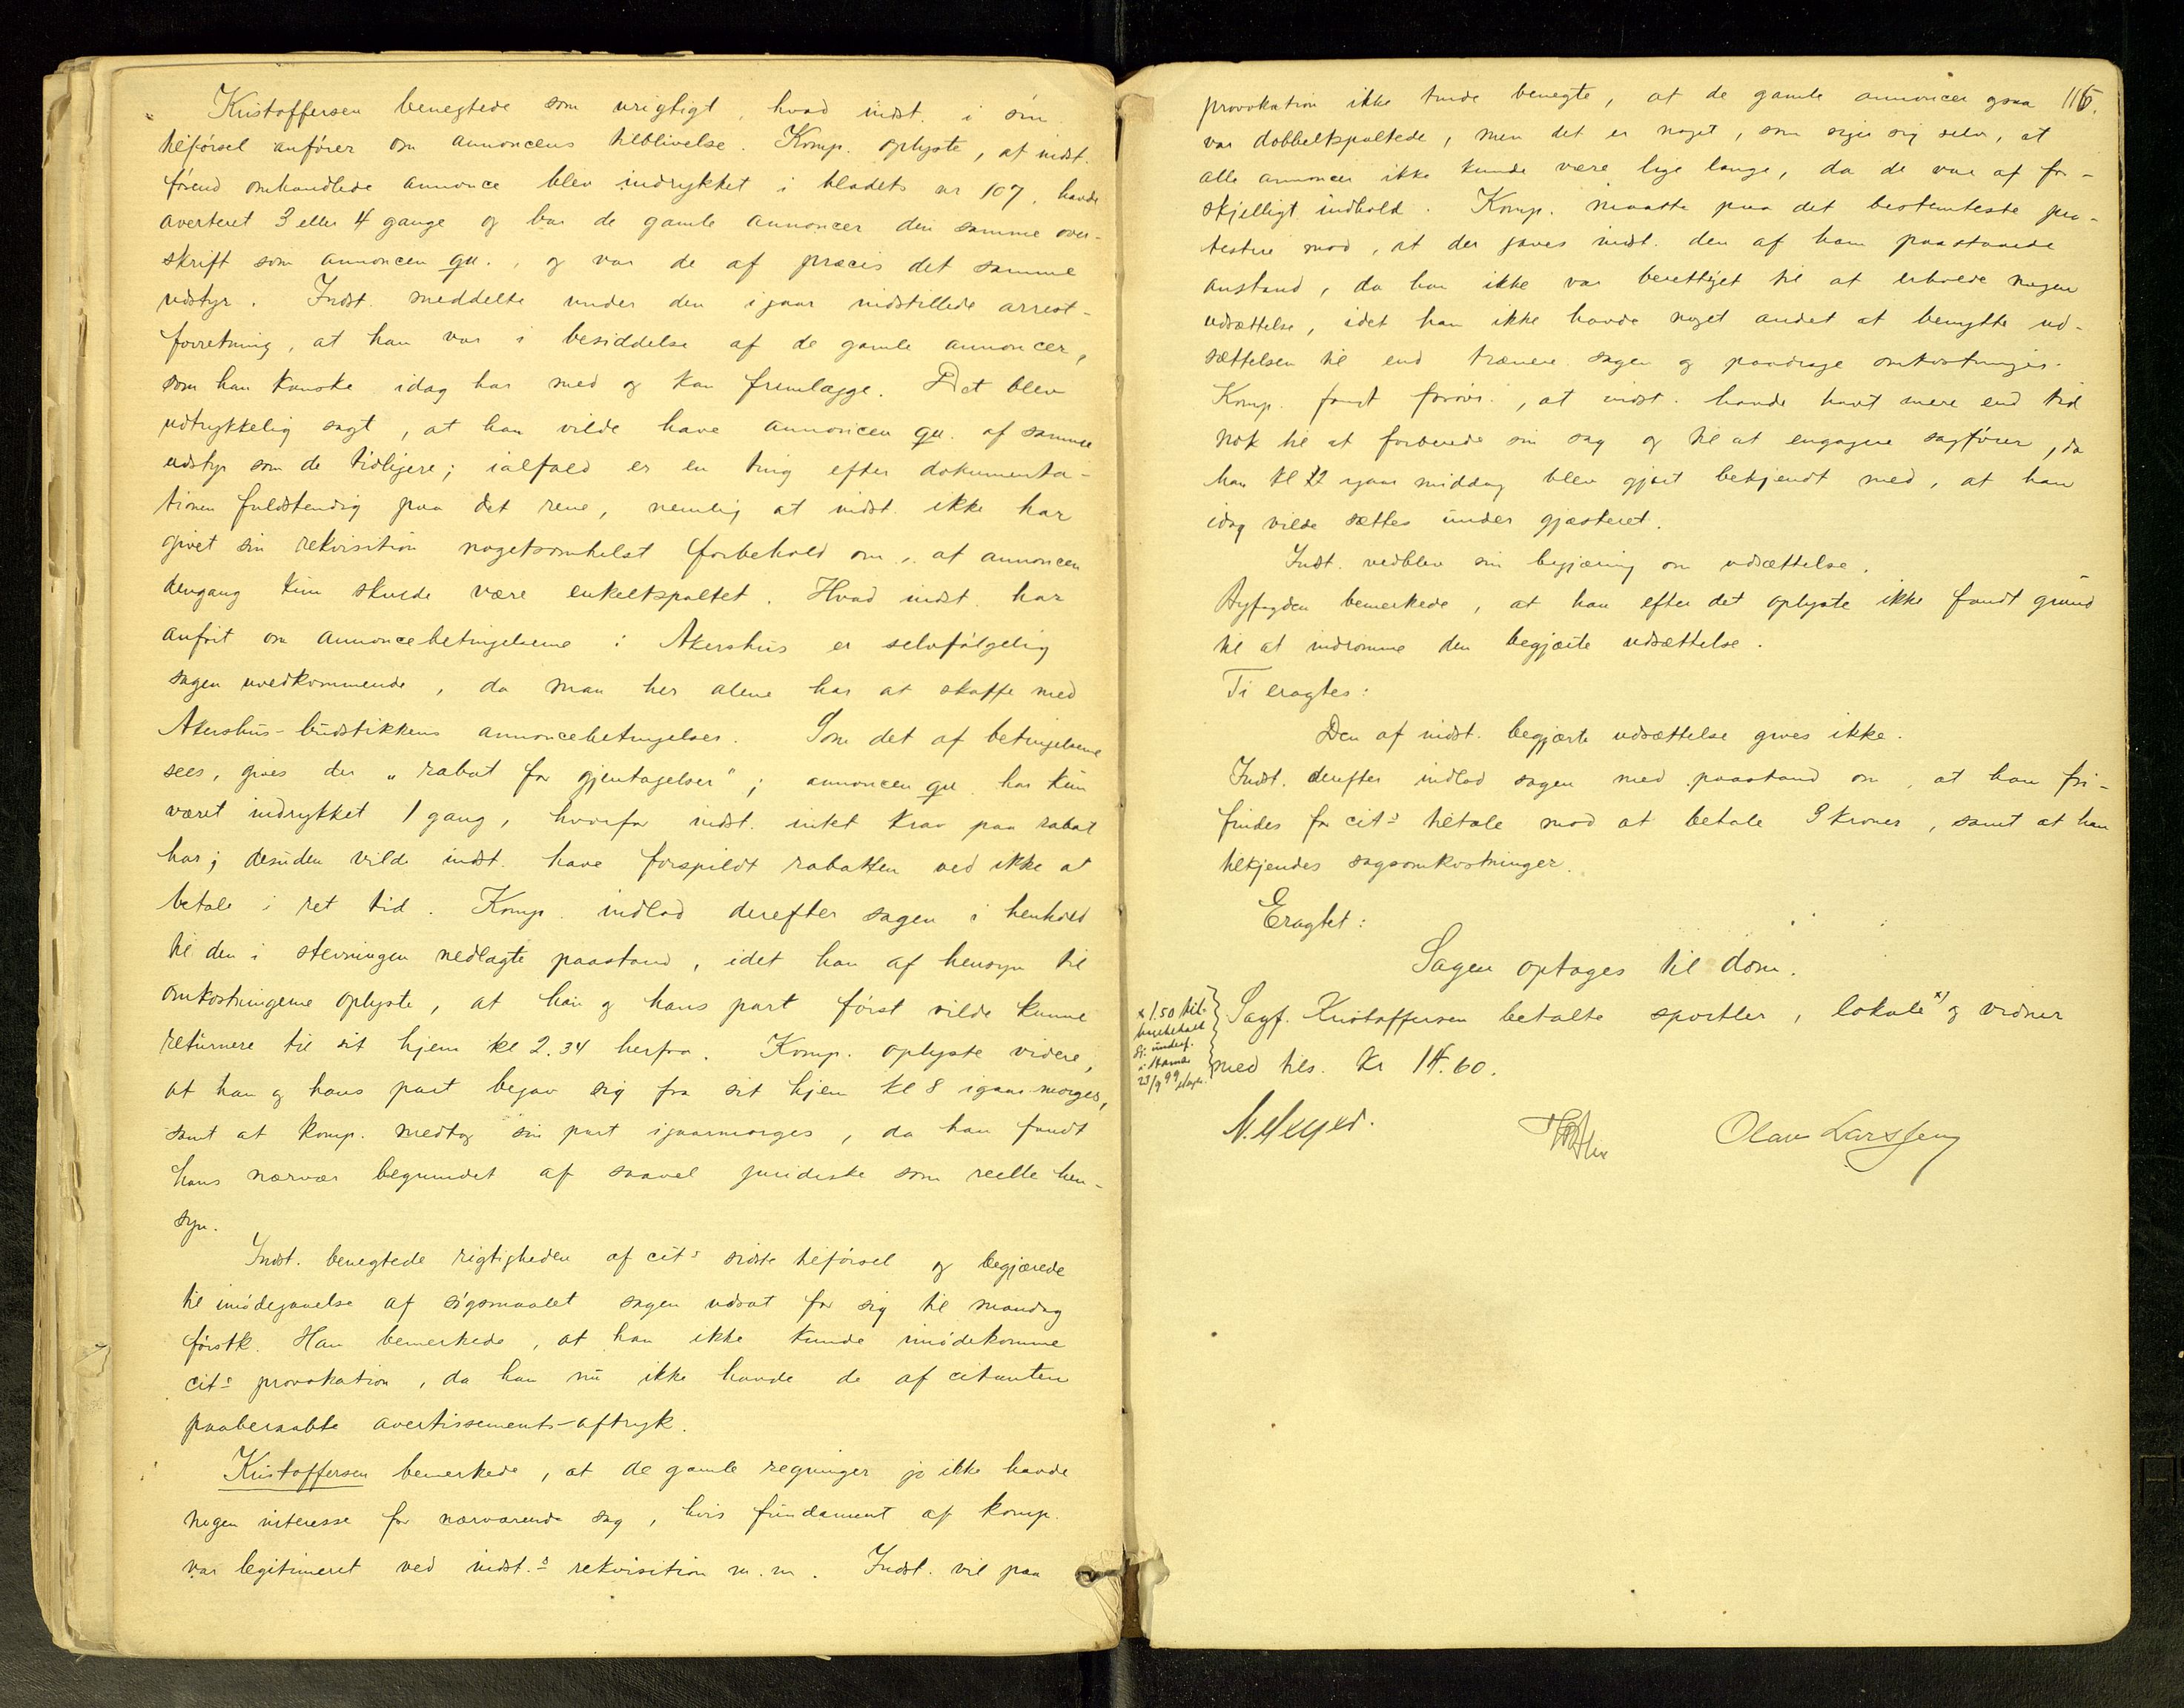 Kristoffersen benegtede som urigtigt, hvad indst. i sin
tilførsel anfører om annoncens tilblivelse. Komp. oplyste, at indst.
førend omhandlede annonce blev indrykket i bladets nr 107, havde
averteret 3 eller 4 gange og bar de gamle annoncer den samme over-
skrift som annoncen qu., og var de af præcis det samme
udstyr. Indst. meddelte under den igaar indstillede arrest-
forretning, at han var i besiddelse af de gamle annoncer,
som han kanske idag har med og kan fremlægge. Det blev
udtrykkelig sagt, at han vilde have annoncen qu. af samme
udstyr som de tidligere; ialfald er en ting efter dokumenta-
tionen fuldstendig paa det rene, nemlig at indst. ikke har
givet sin rekvisition nogetsomhelst forbehold om, at annoncen
dengang kun skulde være enkeltspaltet. Hvad indst. har
anført om annoncebetingelserne i Akershus er selvfølgelig
sagen uvedkommende, da man her alene har at skaffe med
Akershus-budstikkens annoncebetingelser. Som det af betingelserne
sees, gives der „rabat for gjentagelser"; annoncen qu. har kun
været indrykket 1 gang, hvorfor indst. intet krav paa rabat
har; desuden vilde indst. have forspildt rabatten ved ikke at
betale i ret tid. Komp. indlod derefter sagen i henhold
til den i stevningen nedlagte paastand, idet han af hensyn til
omkostningerne oplyste, at han og hans part først vilde kunne
returnere til sit hjem kl 2.34 herfra. Komp. oplyste videre,
at han og hans part begav sig fra sit hjem kl 8 igaar morges,
samt at komp. medtog sin part igaarmorges, da han fandt
hans nærvær begrundet af saavel juridiske som reelle hen-
syn.
Indst. benegtede rigtigheden af cits sidste tilførsel og begjærede
til imødegaaelse af søgsmaalet sagen udsat for sig til mandag
førstk. Han bemerkede, at han ikke kunde imødekomme
cits provokation, da han nu ikke havde de af citanten
paaberaabte avertissements-aftryk.
Kristoffersen bemerkede, at de gamle regninger jo ikke havde
nogen interesse for nærværende sag, hvis fundament af komp.
var legitimeret ved indst.s rekvisition m.m. Indst. vil paa
116.
provokation ikke turde benegte, at de gamle annoncer ogsaa
var dobbeltspaltede, men det er noget, som siger sig selv, at
alle annoncer ikke kunde være lige lange, da de var af for-
skjelligt indhold. Komp. maatte paa det bestemteste pro-
testere mod, at der gaves indst. den af ham paastaaede
anstand, da han ikke var berettiget til at erholde nogen
udsættelse, idet han ikke havde noget andet at benytte ud-
sættelsen til end trænere sagen og paadrage omkostninger.
Komp. fandt forøvr., at indst. havde havt mere end tid
nok til at forberede sin sag og til at engagere sagfører, da
han kl 12 igaar middag blev gjort bekjendt med, at han
idag vilde sættes under gjæsteret.
Indst. vedblev sin begjæring om udsættelse.
Byfogden bemerkede, at han efter det oplyste ikke fandt grund
til at indrømme den begjærte udsættelse.
Ti eragtes:
Den af indst. begjærte udsættelse gives ikke.
Indst. derefter indlod sagen med paastand om, at han fri-
findes for cits tiltale mod at betale 9 kroner, samt at han
tilkjendes sagsomkostninger.
Eragtet:
Sagen optages til dom.
Sagf. Kristoffersen betalte sportler, lokale x) og vidner
med tils. Kr 14.60.
x 1.50 til-
i Hamar
23/9 99
N. Meyer.
Olav Larssen